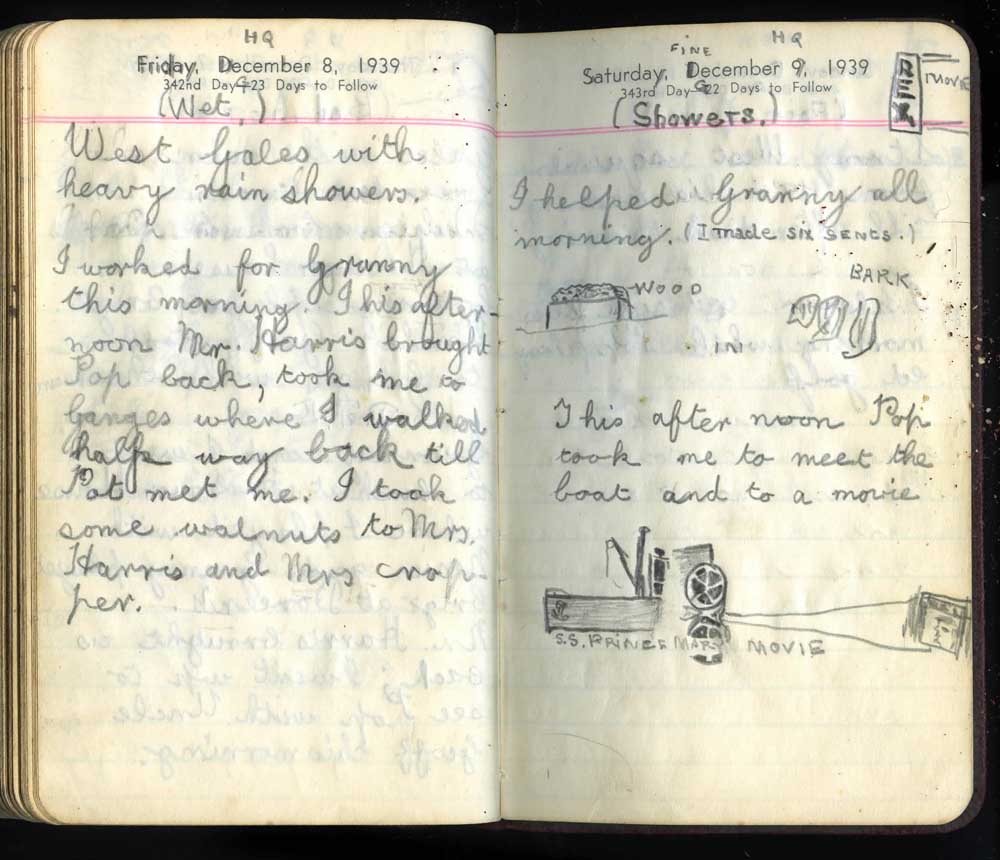 HQ
Friday, December 8, 1939
342nd Day—23 Days to Follow
(Wet.)
West Gales with
heavy rain showers.
I worked for Granny
this morning. This after-
noon Mr. Harris brought
Pop back, took me to
ganges where I walked
half way back till
Pat met me. I took
some walnuts to Mrs.
Harris and Mrs crop-
per.
HQ
FINE
Saturday, December 9, 1939
343rd Day—22 Days to Follow
(Showers.)
REX
MOVIE
I helped Granny all
morning. (I made SIX SENCS.)
WOOD
BARK
IN
This after noon Pop
took me to meet the
boat and to a movie
S.S. PRINCE MARY
MOVIE